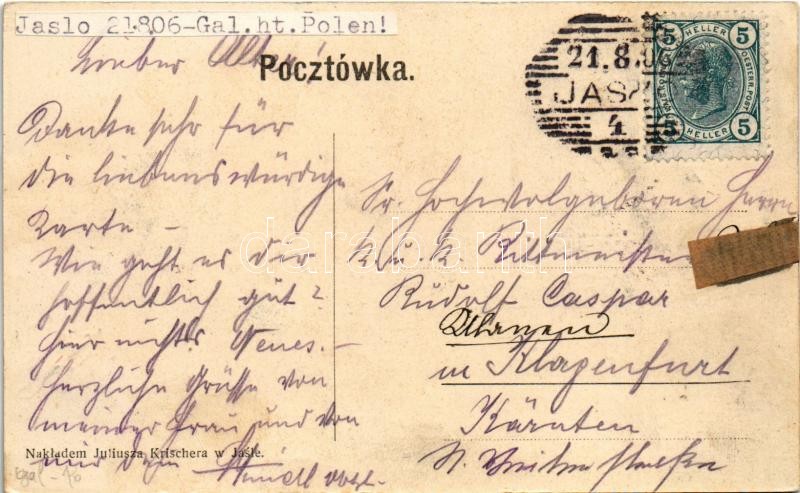 Jaslo 21806-Gal.ht.Polen!
Lieber Alter!
Pocztówka.
21.8.06
JAS
4
5 HELLER 5
5 HELLER 5
Danke sehr für
die liebenswürdige
Karte –
Wie geht es Dir
hoffentlich gut?
Hier nichts Neues.–
Herzliche Grüsse von
meiner Frau und von
mir Dein
Sr. Hochwolgeboren Herrn
k.u.k. Rittmeister
Rudolf Caspar
Ulanen
in Klagenfurt
Kärnten
Nakładem Juliusza Krischera w Jaśle.
darabanth